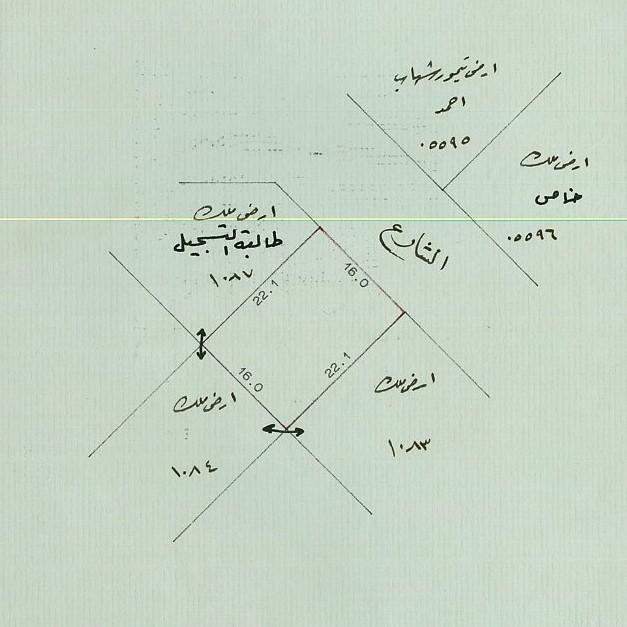 ارض تيمور شهاب
احمد
٠٥٥٩٥
ارض ملك
خاص
٠٥٥٩٦
ارض ملك
طالبة التسجيل
١٠٨٧
الشارع
16.0
22.1
22.1
16.0
ارض ملك
١٠٨٣
ارض ملك
١٠٨٤